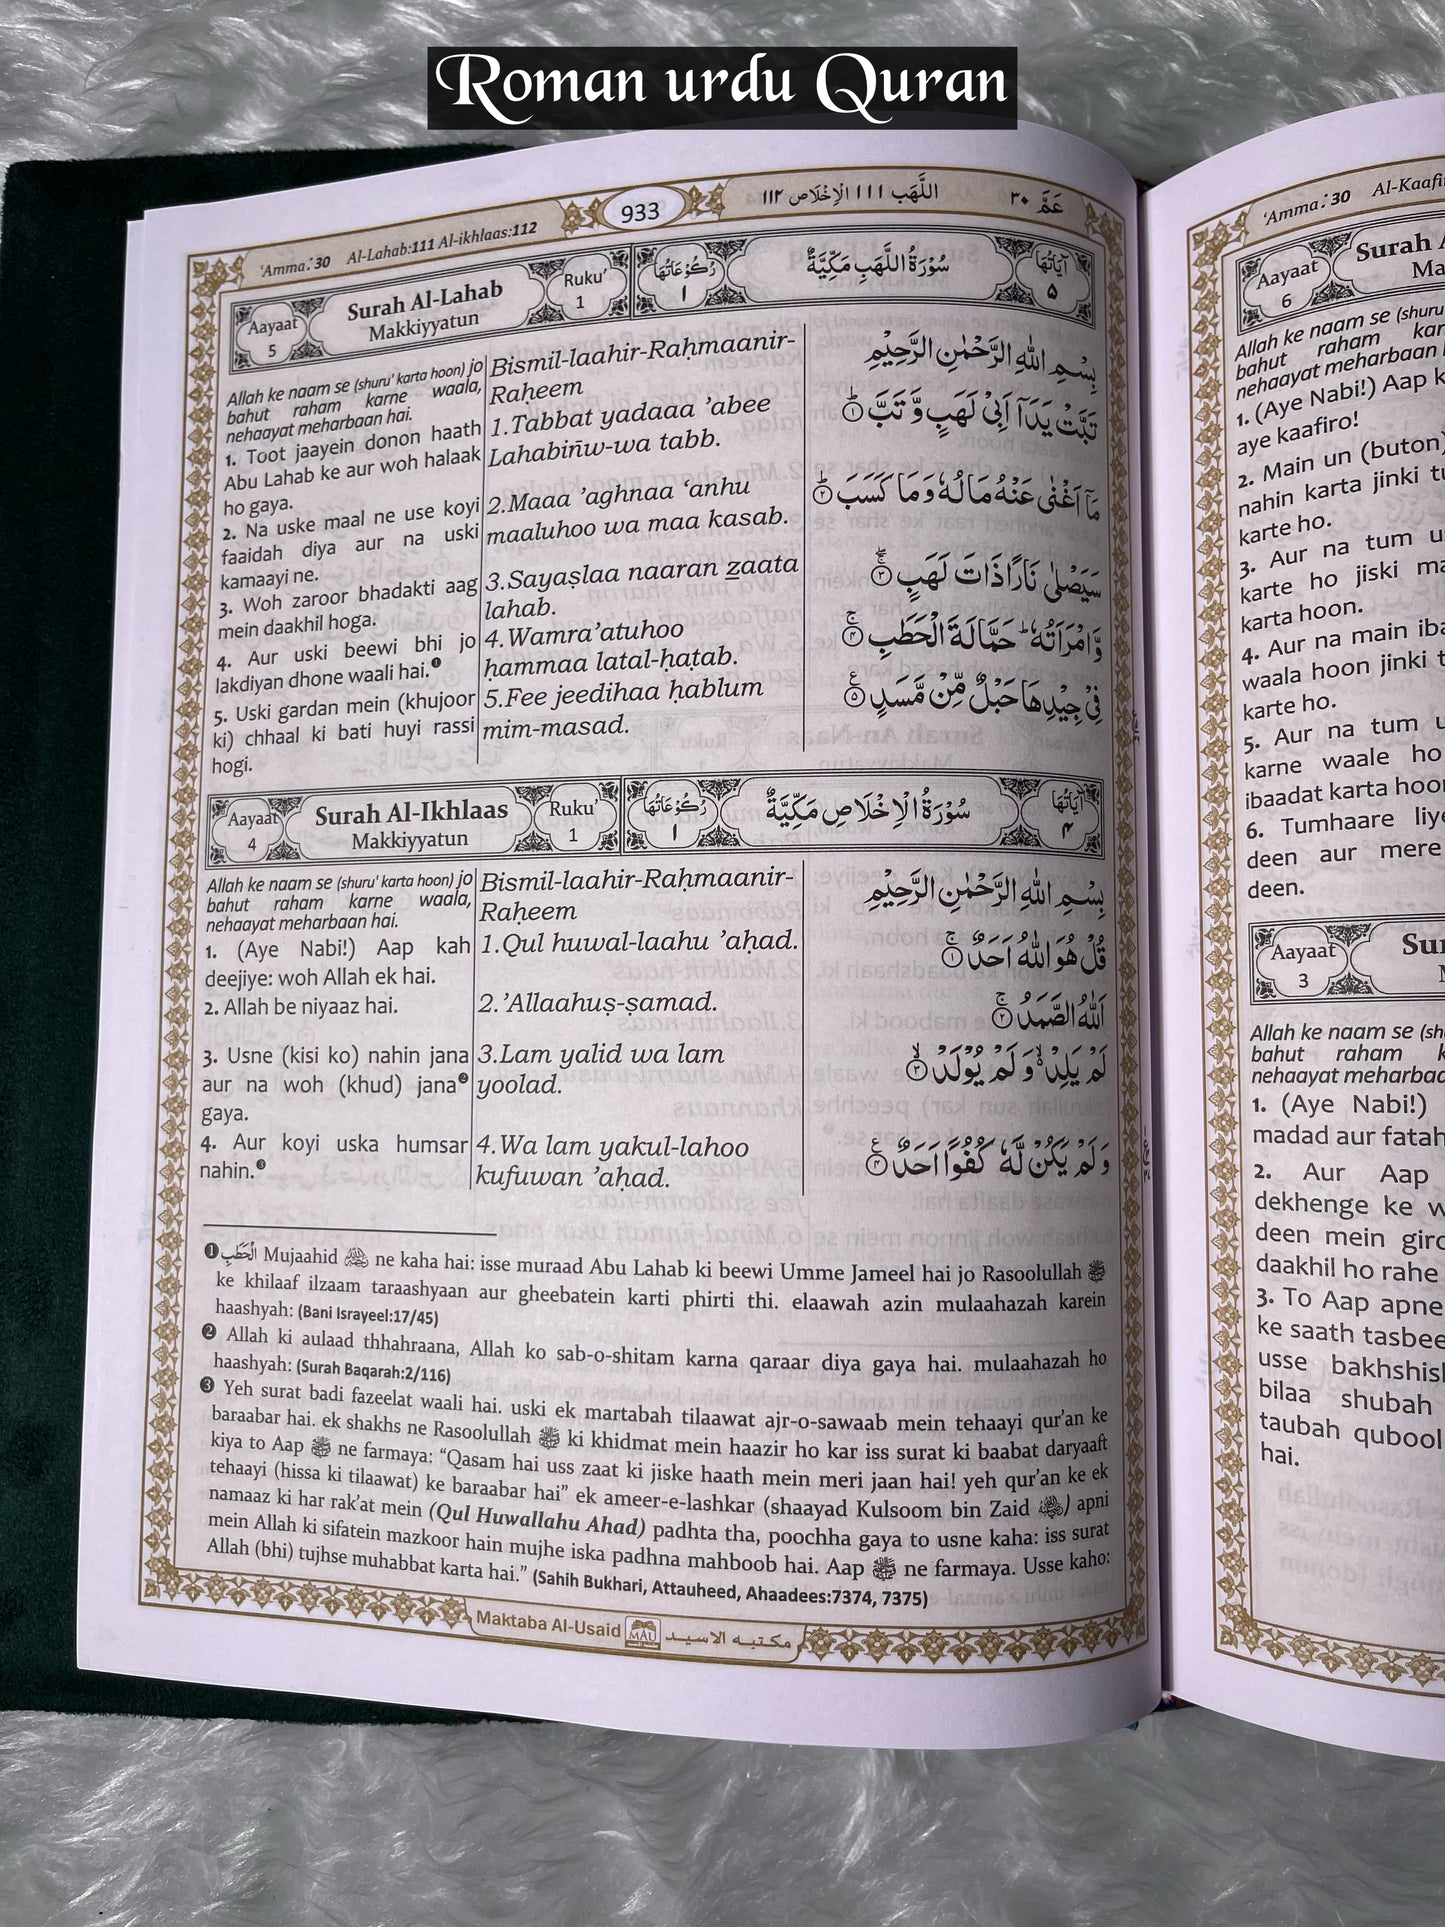 Roman urdu Quran
'Amma: 30 Al-Lahab:111 Al-ikhlaas:112
933
اللَّهَب ١١١ الْاِخْلَاص ١١٢
عَمَّ ٣٠
Aayaat
5
Surah Al-Lahab
Makkiyyatun
Ruku'
1
رُكُوْعَاتُهَا
١
سُوْرَةُ اللَّهَبِ مَكِّيَّةٌ
اٰيَاتُهَا
٥
Allah ke naam se (shuru' karta hoon) jo
bahut raham karne waala,
nehaayat meharbaan hai.
1. Toot jaayein donon haath
Abu Lahab ke aur woh halaak
ho gaya.
2. Na uske maal ne use koyi
faaidah diya aur na uski
kamaayi ne.
3. Woh zaroor bhadakti aag
mein daakhil hoga.
4. Aur uski beewi bhi jo
lakdiyan dhone waali hai.❶
5. Uski gardan mein (khujoor
ki) chhaal ki bati huyi rassi
hogi.
Bismil-laahir-Raḥmaanir-
Raḥeem
1.Tabbat yadaaa ’abee
Lahabiñw-wa tabb.
2.Maaa ’aghnaa ‘anhu
maaluhoo wa maa kasab.
3.Sayaṣlaa naaran zaata
lahab.
4.Wamra’atuhoo
ḥammaa latal-ḥaṭab.
5.Fee jeedihaa ḥablum
mim-masad.
بِسْمِ اللّٰهِ الرَّحْمٰنِ الرَّحِيْمِ
تَبَّتْ يَدَآ اَبِيْ لَهَبٍ وَّ تَبَّ ۝١ؕ
مَآ اَغْنٰى عَنْهُ مَالُهٗ وَ مَا كَسَبَ ۝٢ؕ
سَيَصْلٰى نَارًا ذَاتَ لَهَبٍ ۝٣ۚۖ
وَّ امْرَاَتُهٗ ؕ حَمَّالَةَ الْحَطَبِ ۝٤ۚ
فِيْ جِيْدِهَا حَبْلٌ مِّنْ مَّسَدٍ ۝٥ع
Aayaat
4
Surah Al-Ikhlaas
Makkiyyatun
Ruku'
1
رُكُوْعَاتُهَا
١
سُوْرَةُ الْاِخْلَاصِ مَكِّيَّةٌ
اٰيَاتُهَا
٤
Allah ke naam se (shuru' karta hoon) jo
bahut raham karne waala,
nehaayat meharbaan hai.
1. (Aye Nabi!) Aap kah
deejiye: woh Allah ek hai.
2. Allah be niyaaz hai.
3. Usne (kisi ko) nahin jana
aur na woh (khud) jana❷
gaya.
4. Aur koyi uska humsar
nahin.❸
Bismil-laahir-Raḥmaanir-
Raḥeem
1.Qul huwal-laahu ’aḥad.
2.’Allaahuṣ-ṣamad.
3.Lam yalid wa lam
yoolad.
4.Wa lam yakul-lahoo
kufuwan ’aḥad.
بِسْمِ اللّٰهِ الرَّحْمٰنِ الرَّحِيْمِ
قُلْ هُوَ اللّٰهُ اَحَدٌ ۝١ۚ
اَللّٰهُ الصَّمَدُ ۝٢ۚ
لَمْ يَلِدْ ۙ وَ لَمْ يُوْلَدْ ۝٣ۙ
وَ لَمْ يَكُنْ لَّهٗ كُفُوًا اَحَدٌ ۝٤ع
❶ الْحَطَبِ Mujaahid ne kaha hai: isse muraad Abu Lahab ki beewi Umme Jameel hai jo Rasoolullah ﷺ
ke khilaaf ilzaam taraashyaan aur gheebatein karti phirti thi. elaawah azin mulaahazah karein
haashyah: (Bani Israyeel:17/45)
❷ Allah ki aulaad thhahraana, Allah ko sab-o-shitam karna qaraar diya gaya hai. mulaahazah ho
haashyah: (Surah Baqarah:2/116)
❸ Yeh surat badi fazeelat waali hai. uski ek martabah tilaawat ajr-o-sawaab mein tehaayi qur'an ke
baraabar hai. ek shakhs ne Rasoolullah ﷺ ki khidmat mein haazir ho kar iss surat ki baabat daryaaft
kiya to Aap ﷺ ne farmaya: “Qasam hai uss zaat ki jiske haath mein meri jaan hai! yeh qur'an ke ek
tehaayi (hissa ki tilaawat) ke baraabar hai” ek ameer-e-lashkar (shaayad Kulsoom bin Zaid) apni
namaaz ki har rak'at mein (Qul Huwallahu Ahad) padhta tha, poochha gaya to usne kaha: iss surat
mein Allah ki sifatein mazkoor hain mujhe iska padhna mahboob hai. Aap ﷺ ne farmaya. Usse kaho:
Allah (bhi) tujhse muhabbat karta hai.” (Sahih Bukhari, Attauheed, Ahaadees:7374, 7375)
Maktaba Al-Usaid MAU مکتبہ الاسید
'Amma: 30 Al-Kaafi
Aayaat
6
Surah A
Ma
Allah ke naam se (shuru
bahut raham kar
nehaayat meharbaan
1. (Aye Nabi!) Aap k
aye kaafiro!
2. Main un (buton)
nahin karta jinki tu
karte ho.
3. Aur na tum u
karte ho jiski ma
karta hoon.
4. Aur na main iba
waala hoon jinki t
karte ho.
5. Aur na tum u
karne waale ho
ibaadat karta hoon
6. Tumhaare liye
deen aur mere
deen.
Aayaat
3
Sur
M
Allah ke naam se (sh
bahut raham k
nehaayat meharbaa
1. (Aye Nabi!)
madad aur fatah
2. Aur Aap
dekhenge ke w
deen mein giro
daakhil ho rahe
3. To Aap apne
ke saath tasbee
usse bakhshish
bilaa shubah
taubah qubool
hai.